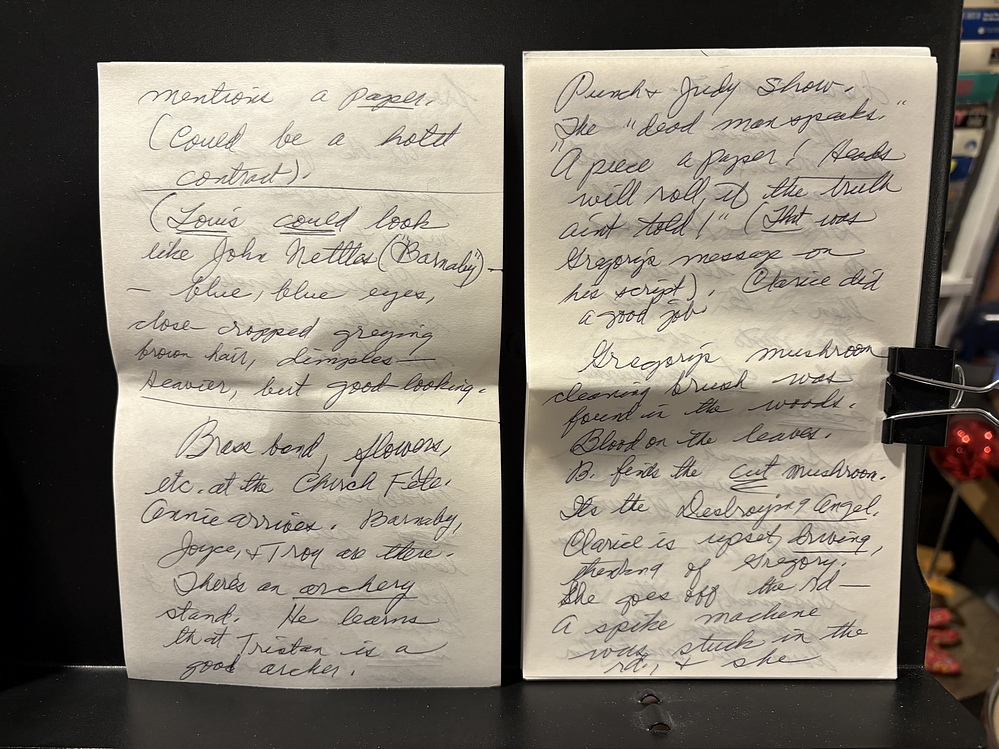 mentions a paper.
(Could be a hotel
contract).
(Louis could look
like John Nettles ("Barnaby") -
- blue, blue eyes,
close cropped greying
brown hair, dimples —
heavier, but good-looking.
Brass band, flowers,
etc. at the Church Fête.
Annie arrives. Barnaby,
Joyce, + Troy are there.
There's an archery
stand. He learns
that Tristan is a
good archer.
Punch + Judy Show.
The "dead man speaks."
"A piece a paper! Heads
will roll, if the truth
aint told!" (That was
Gregory's message on
his script). Clarice did
a good job.
Gregory's mushroom
cleaning brush was
found in the woods.
Blood on the leaves.
B. finds the cut mushroom.
Its the Destroying Angel.
Clarice is upset, driving,
thinking of Gregory.
She goes off the rd —
A spike machine
was stuck in the
rd., + she